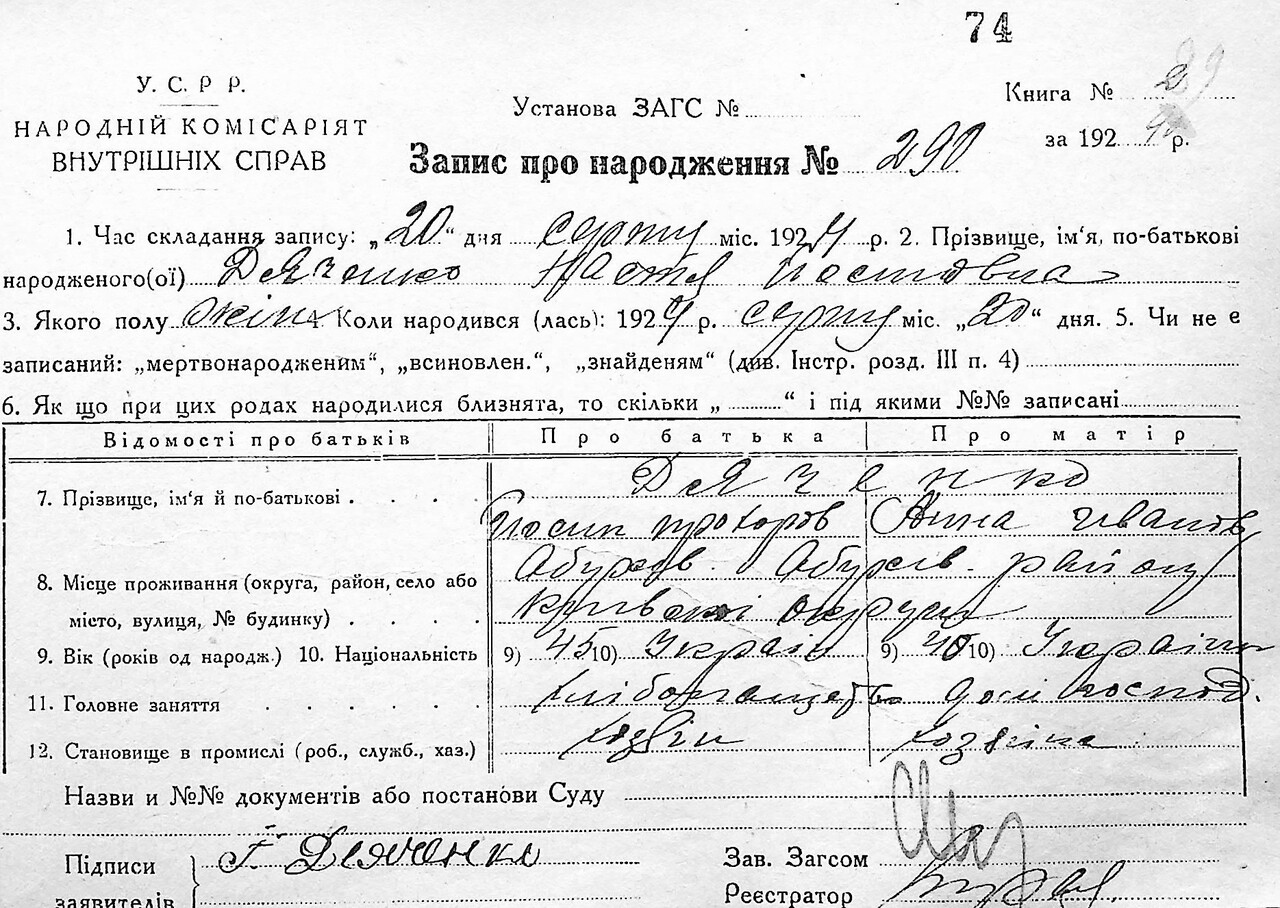 74
У. С. Р Р.
НАРОДНІЙ КОМІСАРІЯТ
ВНУТРІШНІХ СПРАВ
Установа ЗАГС №
Книга №
за 192 р.
Запис про народження № 290
1. Час складання запису: „20“ дня серпня міс. 1924 р. 2. Прізвище, ім'я, по-батькові
народженого(ої) Дяченко Настя
3. Якого полу жін 4. Коли народився (лась): 1924 р. серпня міс. „20“ дня. 5. Чи не є
записаний: „мертвонародженим“, „всиновлен.“, „знайденям“ (див. Інстр. розд. III п. 4)
6. Як що при цих родах народилися близнята, то скільки „ “ і під якими №№ записані
Відомості про батьків Про батька Про матір
7. Прізвище, ім'я й по-батькові . . . . Дяченко
Йосип Прохоров Анна Иванов
8. Місце проживання (округа, район, село або Абухов. Абухів. району
місто, вулиця, № будинку) . . . . Київської округи
9. Вік (років од народж.) 10. Національність 9) 45 10) Україн 9) 40 10) Україн
11. Головне заняття . . . . . . хліборобство дом господ.
12. Становище в промислі (роб., служб., хаз.) хозяїн хозяїка
Назви и №№ документів або постанови Суду
Підписи
заявителів
Дяченко
Зав. Загсом
Реєстратор